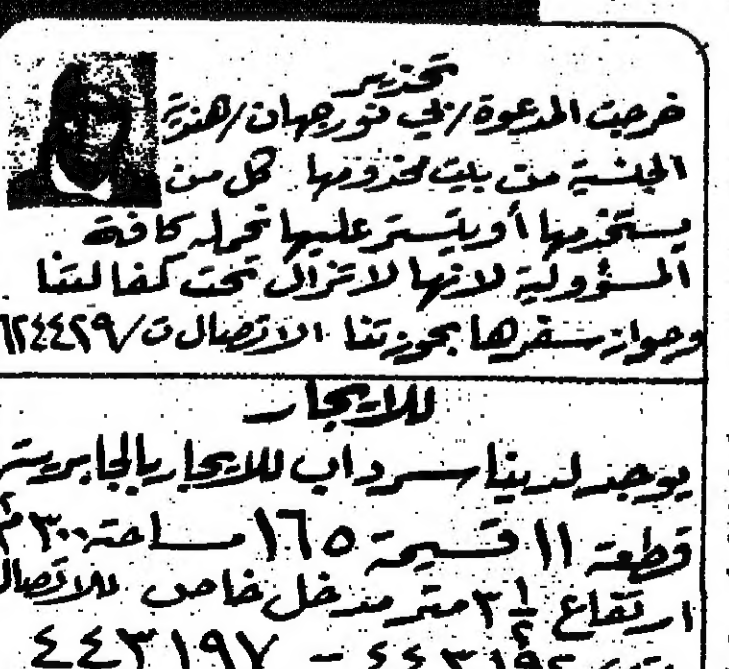 تحذير
خرجت المدعوة/بي نورجهان/هندية
الجنسية من بيت مخدومها كل من
يستخدمها أو يتستر عليها نحمله كافة
المسؤولية لانها لا تزال تحت كفالتنا
وجواز سفرها بحوزتنا الاتصال ت/٦٢٤٤٢٩
للايجار
يوجد لدينا سرداب للايجار بالجابرية
قطعة ١١ قسيمة ١٦٥ مساحة ٣٠٠م٢
ارتفاع ٣ ١/٢ متر مدخل خاص للاتصال
٤٤٣١٩٢ - ٤٤٣١٩٧